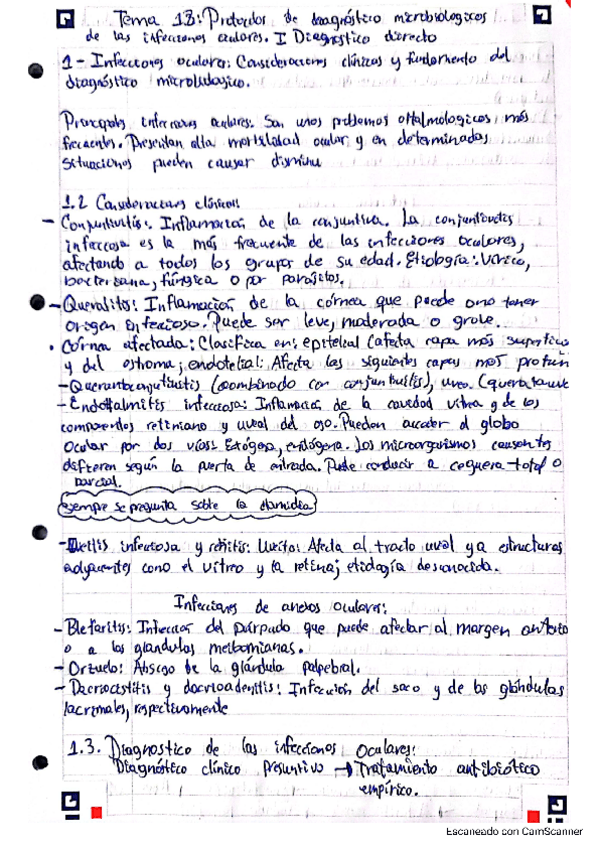 Tema 13: Protocolos de diagnóstico microbiologicos
de las infecciones oculares. I Diagnostico directo
1 - Infecciones oculares: Consideraciones clínicas y fundamento del
diagnóstico microbiologico.
Principales infecciones oculares. Son unos problemas oftalmologicos más
frecuentes. Presentan alta morbilidad ocular y en determinadas
situaciones pueden causar disminu
1.2 Consideraciones clínicas
- Conjuntivitis: Inflamación de la conjuntiva. La conjuntivitis
infecciosa es la más frecuente de las infecciones oculares,
afectando a todos los grupos de su edad. Etiología: Vírica,
bacteriana, fúngica o por parásitos.
- Queratitis: Inflamación de la córnea que puede o no tener
origen infeccioso. Puede ser leve, moderada o grave.
• Córnea afectada: Clasifica en: epitelial (afecta capa más superficia
y del estroma; endotelial: Afecta las siguientes capas más profun
- Queratoconjuntivitis (combinado con conjuntivitis), uveo. (
- Endoftalmitis infecciosa: Inflamación de la cavidad vítrea y de los
componentes retiniano y uveal del ojo. Pueden acceder al globo
Ocular por dos vías: Exógena, endógena. Los microorganismos causantes
difieren según la puerta de entrada. Puede conducir a ceguera total o
parcial.
siempre se pregunta sobre la clamidea
- Uveitis infecciosa y retinitis: Uveitis: Afecta al tracto uveal y a estructuras
adyacentes como el vítreo y la retina; etiología desconocida.
Infecciones de anexos oculares:
- Blefaritis: Infección del párpado que puede afectar al margen
o a las glandulas meibomianas.
- Orzuelo: Absceso de la glándula palpebral.
- Dacriocistitis y dacrioadenitis: Infección del saco y de las glándulas
lacrimales, respectivamente
1.3. Diagnostico de las infecciones Oculares:
Diagnóstico clínico presuntivo → Tratamiento antibiótico
empírico.
Escaneado con CamScanner